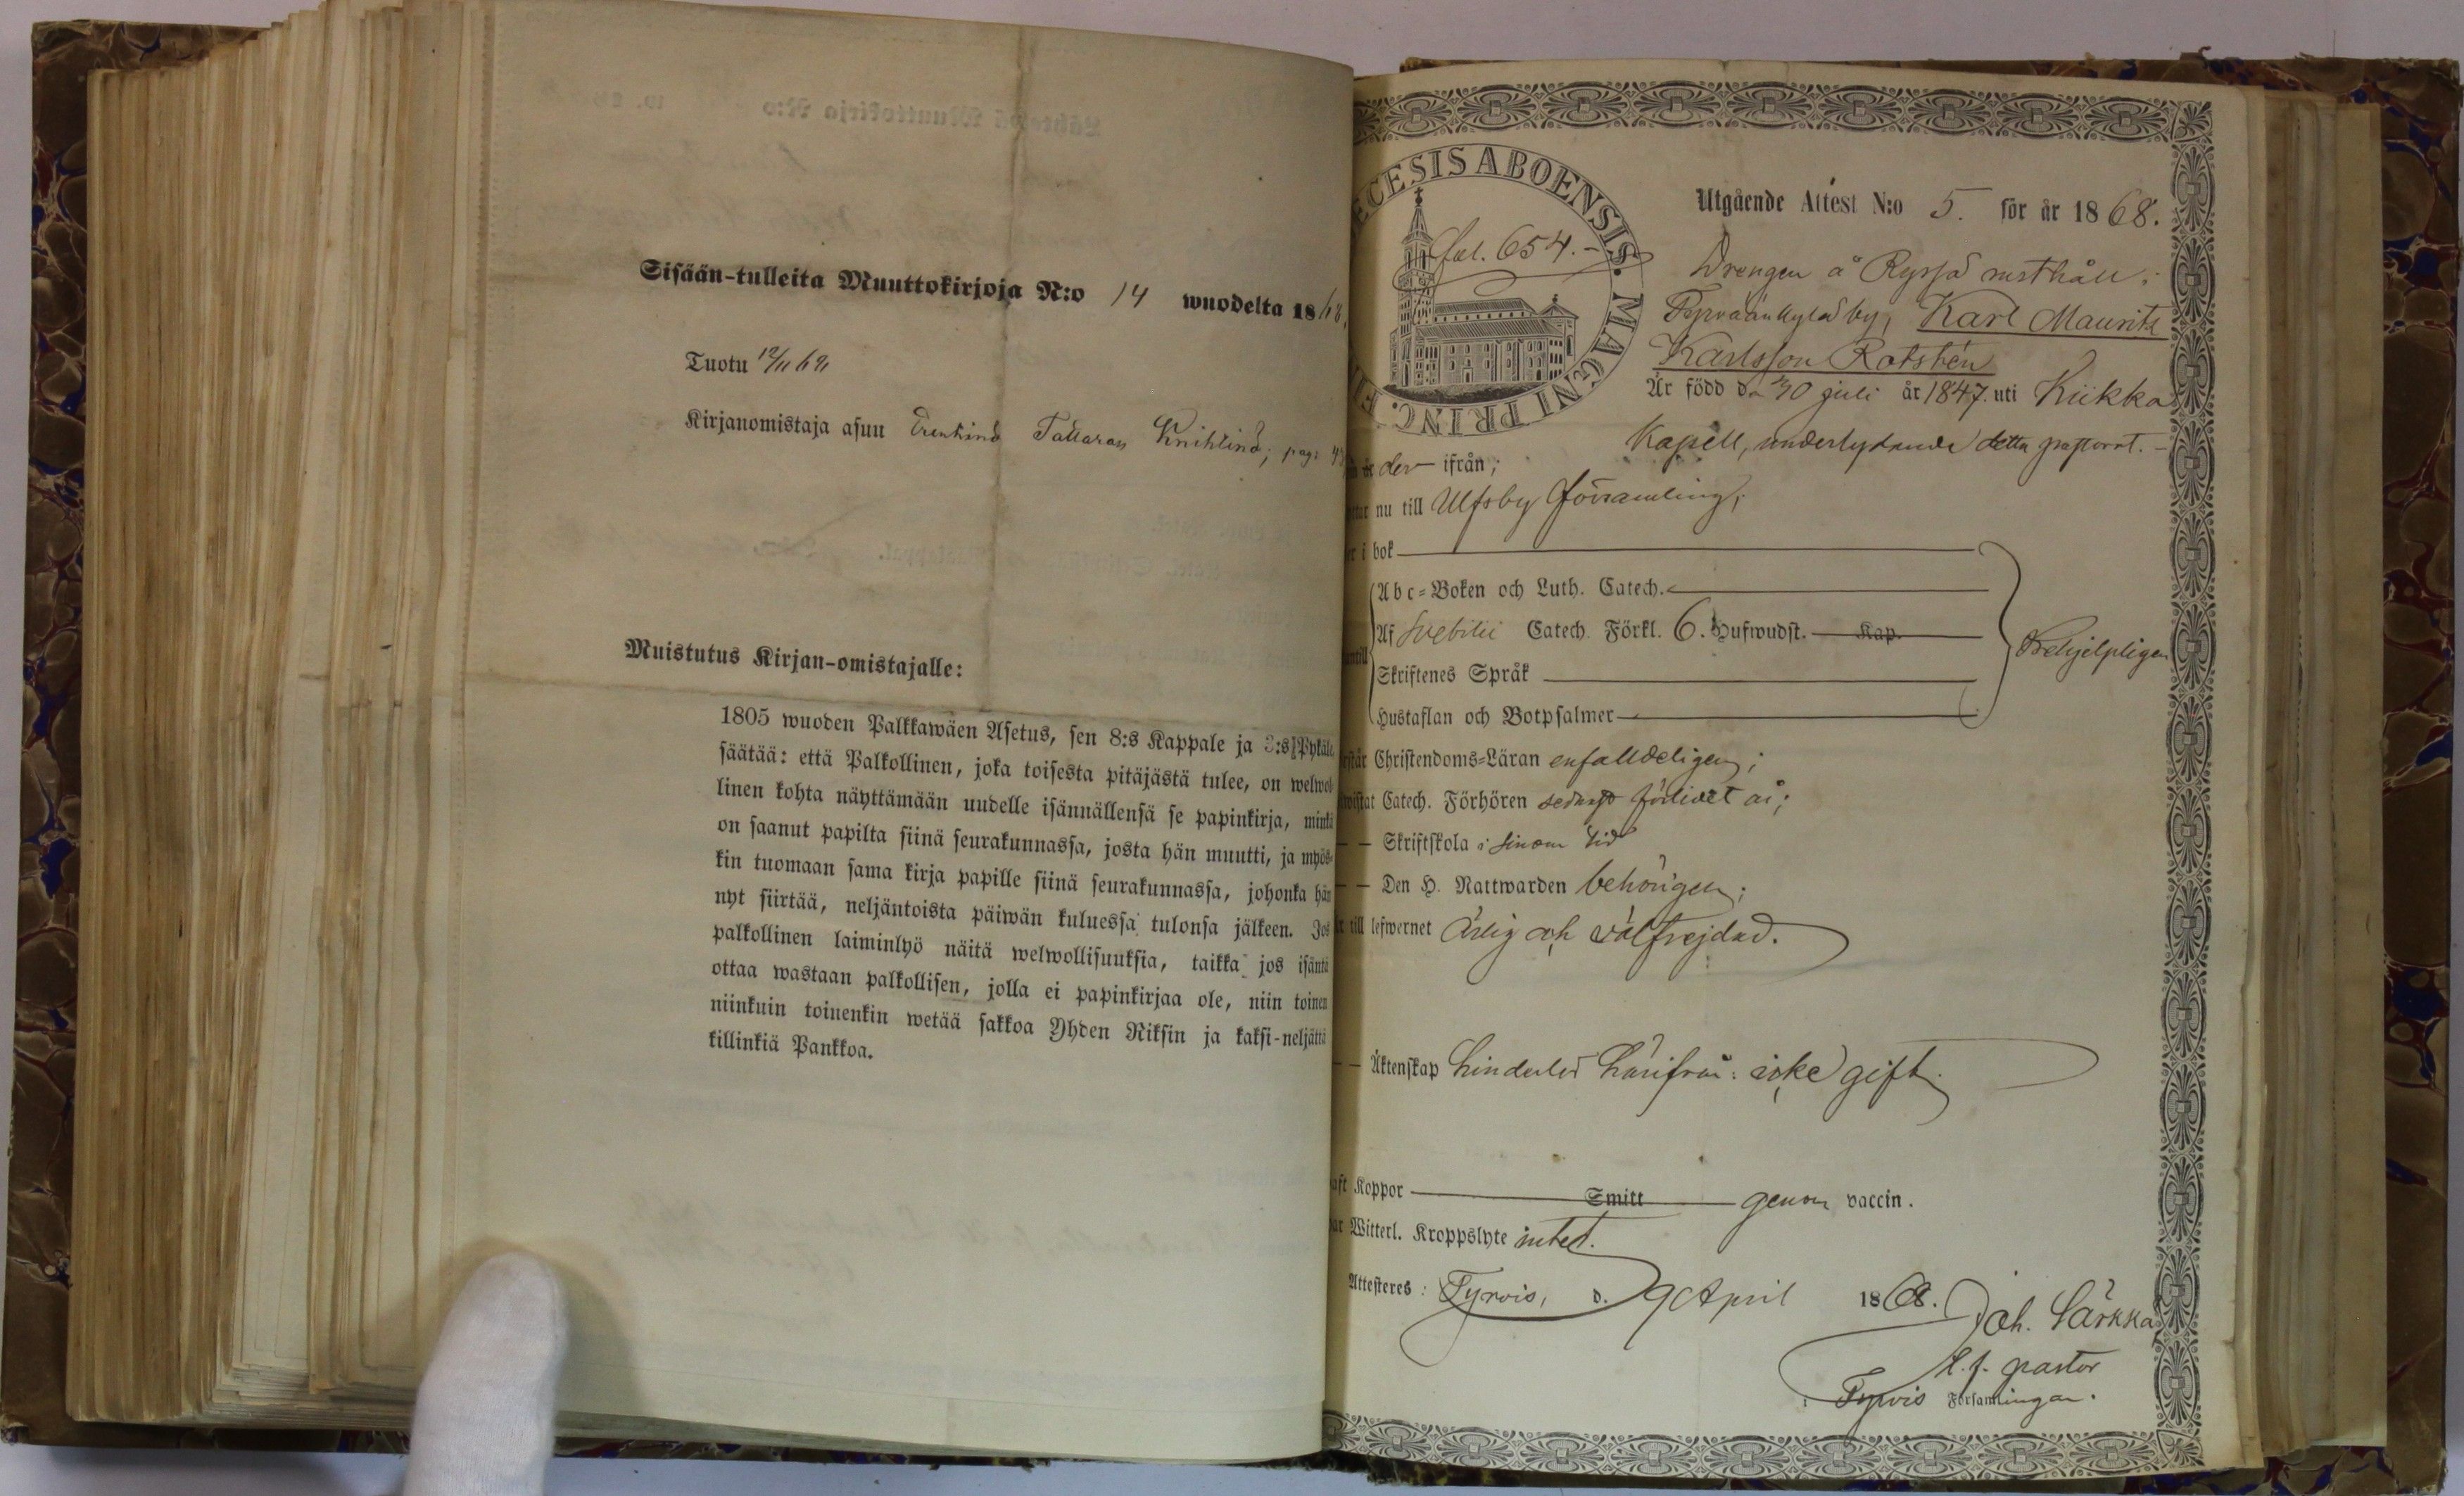 Sisään-tulleita Muuttokirjoja N:o 14 wuodelta 1868.
Tuotu
Kirjanomistaja asuu Tattaran Knihtinä; pag:
Muistutus Kirjan-omistajalle:
1805 wuoden Palkkawäen Asetus, sen 8:s Kappale ja Pykälä,
säätää: että Palkollinen, joka toisesta pitäjästä tulee, on welwol-
linen kohta näyttämään uudelle isännällensä se papinkirja, minkä
on saanut papilta siinä seurakunnassa, josta hän muutti, ja myös-
kin tuomaan sama kirja papille siinä seurakunnassa, johonka hän
nyt siirtää, neljäntoista päiwän kuluessa tulonsa jälkeen. Jos
palkollinen laiminlyö näitä welwollisuuksia, taikka jos isäntä
ottaa wastaan palkollisen, jolla ei papinkirjaa ole, niin toinen
niinkuin toinenkin wetää sakkoa Yhden Riksin ja kaksi-neljättä
killinkiä Pankkoa.
ECESIS ABOENSIS. MAGNI PRINC. FI
fol. 654.
Utgående Attest N:o 5. för år 1868.
Drengen å Ryssä rusthåll i
Tyrväänkylä by, Karl Mauritz
Karlsson Rotstén
Är född d. 30 juli år 1847. uti Kiikka
Kapell, underlydande detta pastorat.
der ifrån;
nu till Ulfsby församling;
i bok
Abc-Boken och Luth. Catech.
Af Svebilii Catech. Förkl. 6. Hufwudst. Kap.
Skriftenes Språk
Hustaflan och Botpsalmer
Behjelpligen
Christendoms-Läran enfalldeligen;
Catech. Förhören sednast förlidet år;
Skriftskola i sinom tid
Den H. Nattwarden behörigen;
till lefwernet ärlig och välfrejdad.
Äktenskap hinderlös härifrån: icke gift.
Koppor Smitt genom vaccin.
Witterl. Kroppslyte intet.
Attesteres: Tyrvis, d. 9 April 1868.
Joh. Särkkä
pastor
i Tyrvis Församlingar.